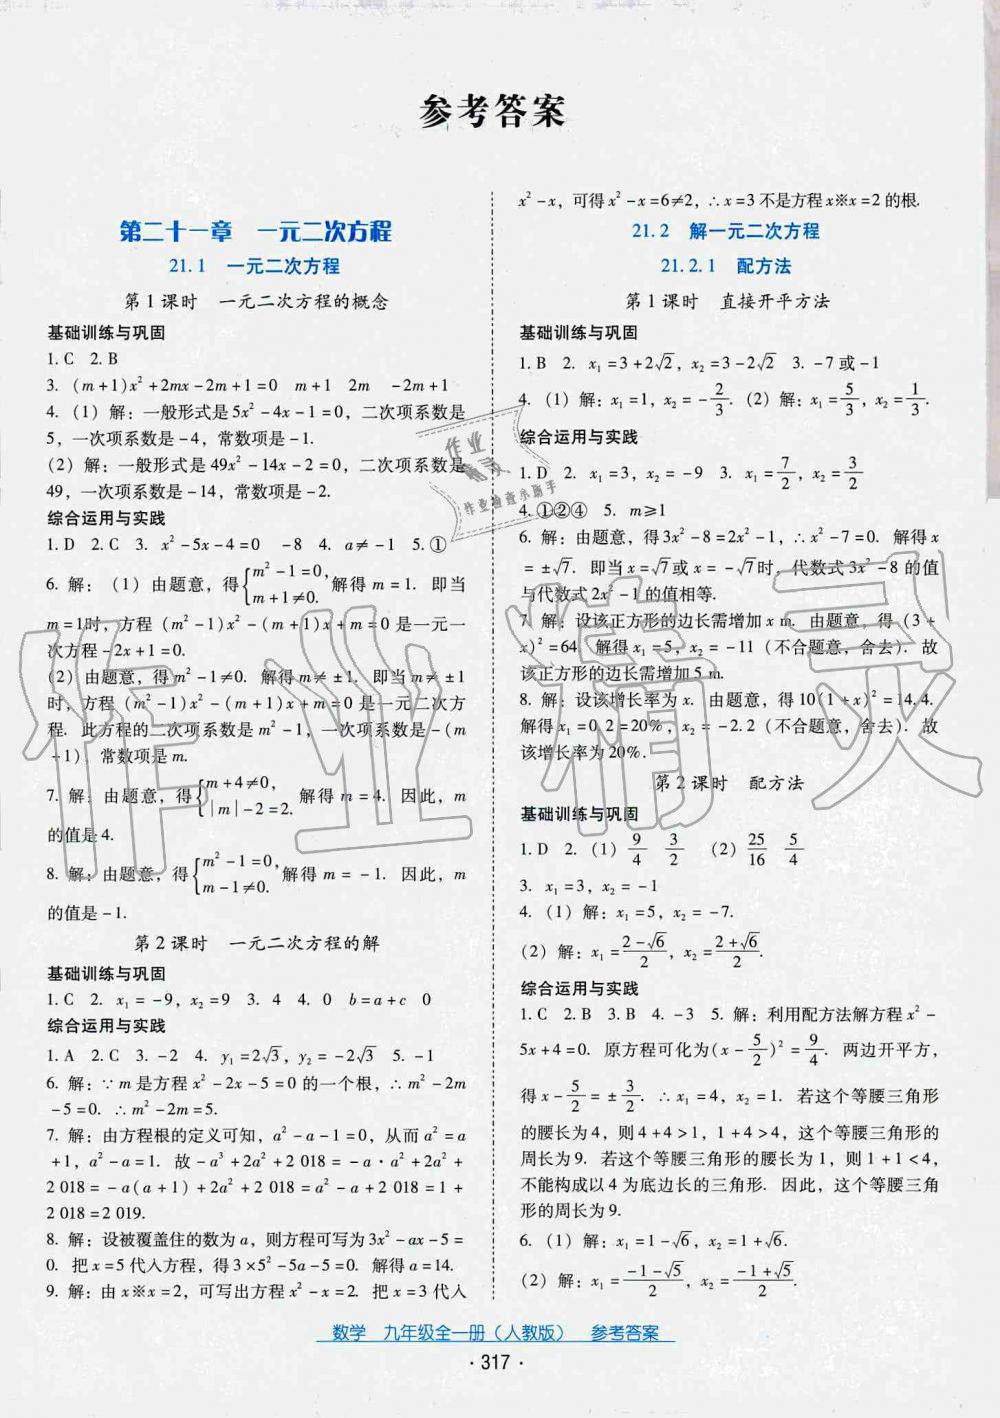 参考答案
第二十一章 一元二次方程
21.1 一元二次方程
第1课时 一元二次方程的概念
基础训练与巩固
1. C 2. B
3. (m+1)x²+2mx-2m+1=0 m+1 2m -2m+1
4. (1) 解:一般形式是5x²-4x-1=0, 二次项系数是
5, 一次项系数是-4, 常数项是-1.
(2) 解:一般形式是49x²-14x-2=0, 二次项系数是
49, 一次项系数是-14, 常数项是-2.
综合运用与实践
1. D 2. C 3. x²-5x-4=0 -8 4. a≠-1 5. ①
6. 解: (1) 由题意, 得{m²-1=0, m+1≠0. 解得m=1. 即当
m=1时, 方程 (m²-1)x²-(m+1)x+m=0是一元一
次方程-2x+1=0.
(2) 由题意, 得m²-1≠0. 解得m≠±1. 即当m≠±1
时, 方程 (m²-1)x²-(m+1)x+m=0是一元二次方
程. 此方程的二次项系数是m²-1, 一次项系数是-(m
+1), 常数项是m.
7. 解:由题意, 得{m+4≠0, |m|-2=2. 解得m=4. 因此, m
的值是4.
8. 解:由题意, 得{m²-1=0, m-1≠0. 解得m=-1. 因此, m
的值是-1.
第2课时 一元二次方程的解
基础训练与巩固
1. C 2. x₁=-9, x₂=9 3. 4 4. 0 b=a+c 0
综合运用与实践
1. A 2. C 3. -2 4. y₁=2√3, y₂=-2√3 5. -1
6. 解:∵m是方程x²-2x-5=0的一个根, ∴m²-2m
-5=0. ∴m²-2m=5.
7. 解:由方程根的定义可知, a²-a-1=0, 从而a²=a
+1, a²-a=1. 故-a³+2a²+2 018=-a·a²+2a²+
2 018=-a(a+1)+2a²+2 018=a²-a+2 018=1+
2 018=2 019.
8. 解:设被覆盖住的数为a, 则方程可写为3x²-ax-5=
0. 把x=5代入方程, 得3×5²-5a-5=0. 解得a=14.
9. 解:由x※x=2, 可写出方程x²-x=2. 把x=3代入
x²-x, 可得x²-x=6≠2, ∴x=3不是方程x※x=2的根.
21.2 解一元二次方程
21.2.1 配方法
第1课时 直接开平方法
基础训练与巩固
1. B 2. x₁=3+2√2, x₂=3-2√2 3. -7或-1
4. (1) 解:x₁=1, x₂=-2/3. (2) 解:x₁=5/3, x₂=1/3.
综合运用与实践
1. D 2. x₁=3, x₂=-9 3. x₁=7/2, x₂=3/2
4. ①②④ 5. m≥1
6. 解:由题意, 得3x²-8=2x²-1, ∴x²-7=0. 解得x
=±√7. 即当x=√7或x=-√7时, 代数式3x²-8的值
与代数式2x²-1的值相等.
7. 解:设该正方形的边长需增加x m. 由题意, 得 (3+
x)²=64. 解得x₁=5, x₂=-11 (不合题意, 舍去). 故
该正方形的边长需增加5 m.
8. 解:设该增长率为x. 由题意, 得10(1+x)²=14.4.
解得x₁=0.2=20%, x₂=-2.2 (不合题意, 舍去). 故
该增长率为20%.
第2课时 配方法
基础训练与巩固
1. D 2. (1) 9/4 3/2 (2) 25/16 5/4
3. x₁=3, x₂=-1
4. (1) 解:x₁=5, x₂=-7.
(2) 解:x₁=(2-√6)/2, x₂=(2+√6)/2.
综合运用与实践
1. C 2. B 3. B 4. -3 5. 解:利用配方法解方程x²-
5x+4=0. 原方程可化为(x-5/2)²=9/4. 两边开平方,
得x-5/2=±3/2. ∴x₁=4, x₂=1. 若这个等腰三角形
的腰长为4, 则4+4>1, 1+4>4, 这个等腰三角形的
周长为9. 若这个等腰三角形的腰长为1, 则1+1<4,
不能构成以4为底边长的三角形. 因此, 这个等腰三角
形的周长为9.
6. (1) 解:x₁=1-√6, x₂=1+√6.
(2) 解:x₁=(-1-√5)/2, x₂=(-1+√5)/2.
数学 九年级全一册(人教版) 参考答案
· 317 ·
作业精灵
作业
精灵
作业检查小助手